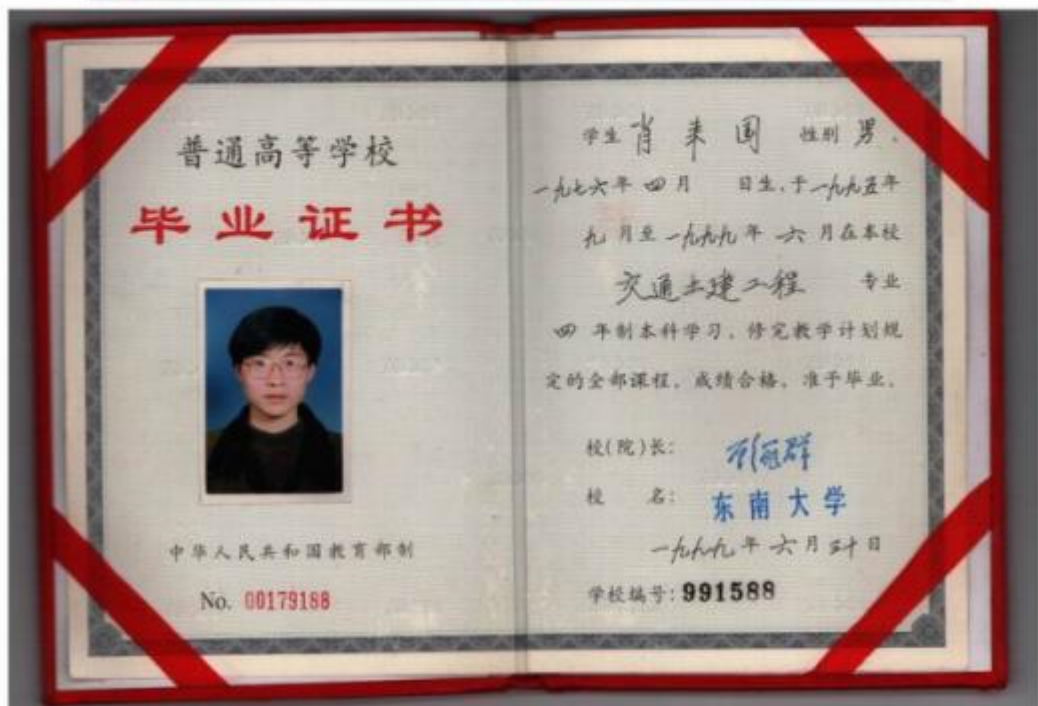 普通高等学校
毕业证书
中华人民共和国教育部制
No. 00179188
学生 肖来国 性别 男，
一九七六年 四月 日生，于一九九五年
九月至一九九九年 六月在本校
交通土建工程 专业
四 年制本科学习，修完教学计划规
定的全部课程，成绩合格，准予毕业。
校(院)长：
校 名：东南大学
一九九九年 六月 三十日
学校编号：991588